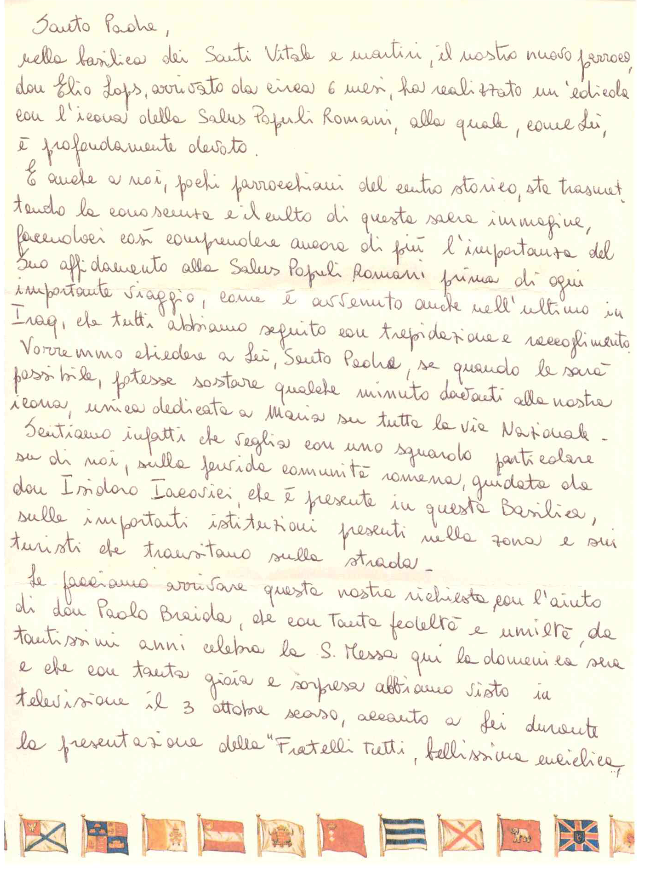 Santo Padre,
nella basilica dei Santi Vitale e martiri, il nostro nuovo parroco,
don Elio Lops, arrivato da circa 6 mesi, ha realizzato un'edicola
con l'icona della Salus Populi Romani, alla quale, come Lei,
è profondamente devoto.
E anche a noi, pochi parrocchiani del centro storico, sta trasmet-
tendo la conoscenza e il culto di questa sacra immagine,
facendoci così comprendere ancora di più l'importanza del
Suo affidamento alla Salus Populi Romani prima di ogni
importante viaggio, come è avvenuto anche nell'ultimo in
Iraq, che tutti abbiamo seguito con trepidazione e raccoglimento.
Vorremmo chiedere a Lei, Santo Padre, se quando le sarà
possibile, potesse sostare qualche minuto davanti alla nostra
icona, unica dedicata a Maria su tutta la via Nazionale -
Sentiamo infatti che veglia con uno sguardo particolare
su di noi, sulla fervida comunità romena, guidata da
don Isidoro Iacovici, che è presente in questa Basilica,
sulle importanti istituzioni presenti nella zona e sui
turisti che transitano sulla strada -
Le facciamo arrivare questa nostra richiesta, con l'aiuto
di don Paolo Braida, che con tanta fedeltà e umiltà, da
tantissimi anni celebra la S. Messa qui la domenica sera
e che con tanta gioia e sorpresa abbiamo visto in
televisione il 3 ottobre scorso, accanto a Lei durante
la presentazione della "Fratelli tutti, bellissima enciclica,